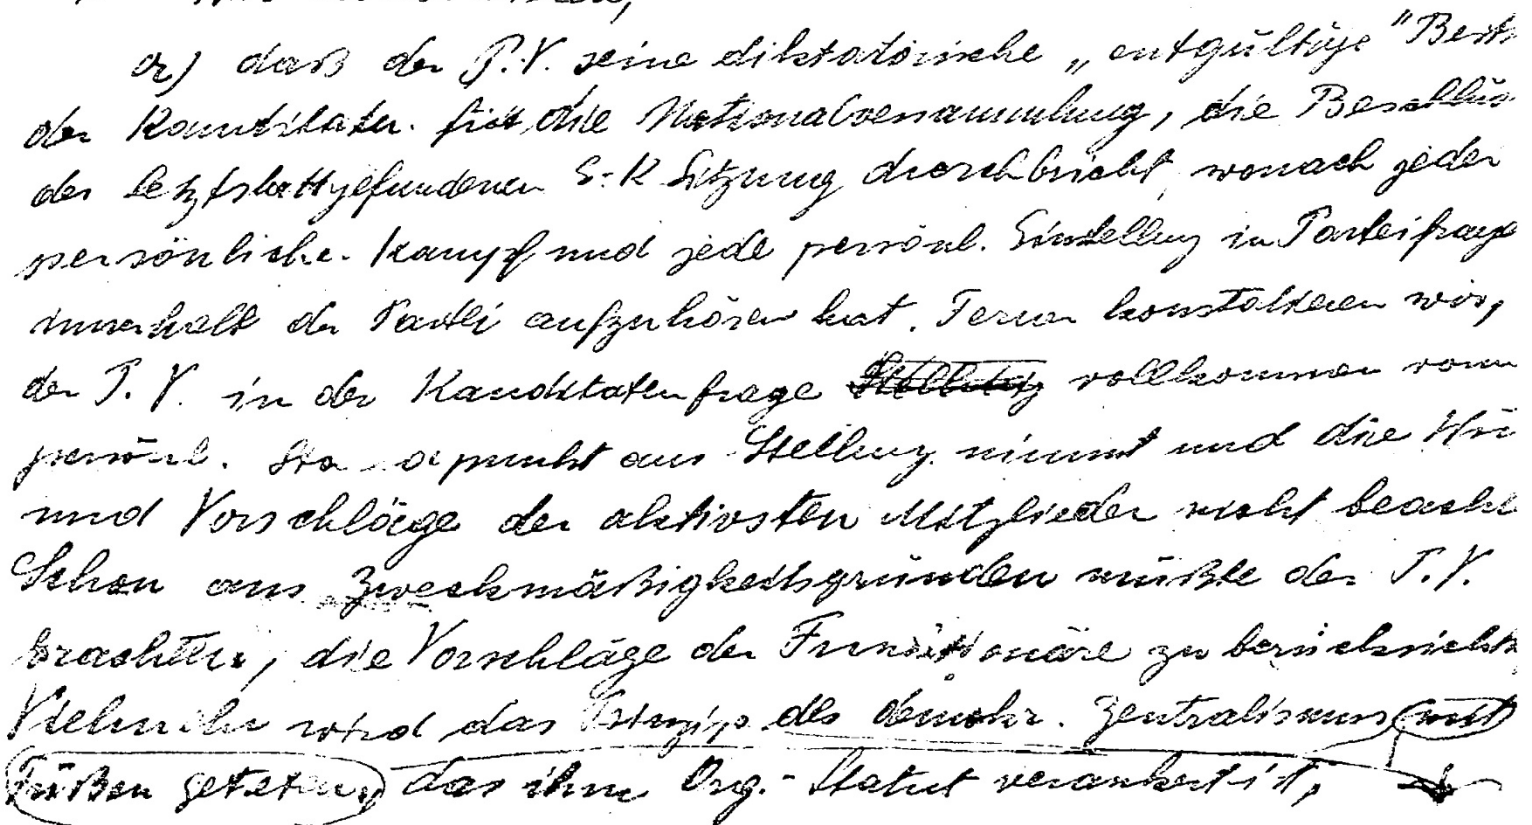 a) daß der P.V. seine diktatorische „entgültige" Best
der Kanditaten für die Nationalversammlung, die Beschlüs
der letztstattgefundenen S-K Sitzung durchbricht, wonach jeder
persönliche Kampf und jede persönl. Einstellung in Parteifrage
innerhalb der Partei aufzuhören hat. Ferner konstatieren wir,
der P.V. in der Kanditatenfrage vollkommen vom
persönl. Sta dpunkt aus Stellung nimmt und die
und Vorschläge der aktivsten Mitglieder nicht beacht
Schon aus Zweckmäßigkeitsgründen müßte der P.V.
trachten, die Vorschläge der Funktionäre zu berücksicht
Vielmehr wird das Prinzip des demokr. Zentralismus mit
Füßen getreten, das ihm Org.-Statut verankert ist,